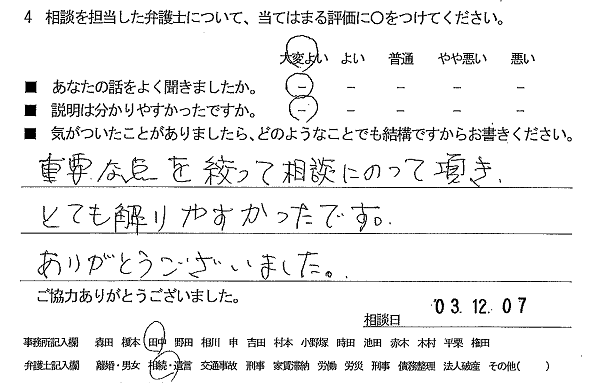 4 相談を担当した弁護士について、当てはまる評価に○をつけてください。
大変よい よい 普通 やや悪い 悪い
■ あなたの話をよく聞きましたか。 － － － － －
■ 説明は分かりやすかったですか。 － － － － －
■ 気がついたことがありましたら、どのようなことでも結構ですからお書きください。
重要な点を絞って相談にのって頂き、
とても解りやすかったです。
ありがとうございました。
ご協力ありがとうございました。
相談日 '03.12.07
事務所記入欄 森田 榎本 田中 野田 相川 申 吉田 村本 小野塚 時田 池田 赤木 木村 平栗 権田
弁護士記入欄 離婚・男女 相続・遺言 交通事故 刑事 家賃滞納 労働 労災 刑事 債務整理 法人破産 その他( )